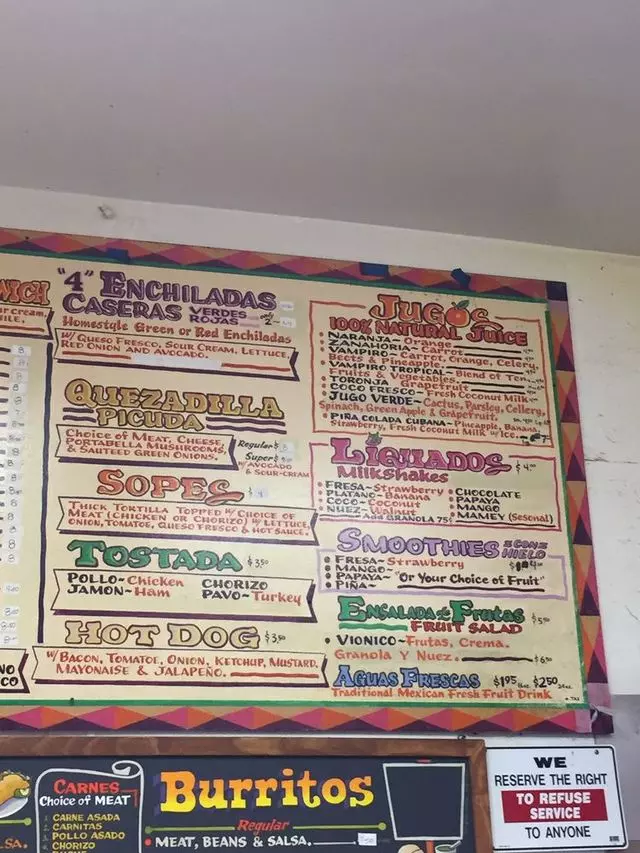 "4" ENCHILADAS
CASERAS VERDES
ROJAS
Homestyle Green or Red Enchiladas
W/ QUESO FRESCO, SOUR CREAM, LETTUCE,
RED ONION AND AVOCADO.
QUEZADILLA
PICUDA
CHOICE OF MEAT, CHEESE,
PORTABELLA MUSHROOMS,
& SAUTEED GREEN ONIONS.
Regular $
Super $
W/ AVOCADO
& SOUR-CREAM
SOPES
THICK TORTILLA TOPPED W/ CHOICE OF
MEAT (CHICKEN OR CHORIZO) W/ LETTUCE,
ONION, TOMATOE, QUESO FRESCO & HOT SAUCE.
TOSTADA $350
POLLO~Chicken CHORIZO
JAMON~Ham PAVO~Turkey
HOT DOG $350
W/ BACON, TOMATOE, ONION, KETCHUP, MUSTARD,
MAYONAISE & JALAPEÑO.
JUGOS
100% NATURAL JUICE
• NARANJA~ Orange
• ZANAHORIA~ Carrot
• VAMPIRO~ Carrot, Orange, Celery,
Beets & Pineapple.
• VAMPIRO TROPICAL~ Blend of Ten
Fruits & Vegetables.
• TORONJA~ Grapefruit
• COCO FRESCO~ Fresh Coconut Milk
• JUGO VERDE~ Cactus, Parsley, Cellery,
Spinach, Green Apple & Grapefruit.
• PIÑA COLADA CUBANA~ Pineapple, Banana
Strawberry, Fresh Coconut Milk w/ Ice.
LIQUADOS $4.00
MilkShakes
• FRESA~Strawberry • CHOCOLATE
• PLATANO~Banana • PAPAYA
• COCO~Coconut • MANGO
• NUEZ~Walnut • MAMEY (Sesonal)
Add GRANOLA 75¢
SMOOTHIES CON HIELO
• FRESA~Strawberry
• MANGO~
• PAPAYA~ "Or Your Choice of Fruit"
• PIÑA~
ENSALADA de FRUTAS
FRUIT SALAD
• VIONICO~Frutas, Crema.
Granola Y Nuez. $650
AGUAS FRESCAS $195 $250
Traditional Mexican Fresh Fruit Drink
CARNES
Choice of MEAT
CARNE ASADA
CARNITAS
POLLO ASADO
CHORIZO
Burritos
Regular
• MEAT, BEANS & SALSA.
WE
RESERVE THE RIGHT
TO REFUSE
SERVICE
TO ANYONE